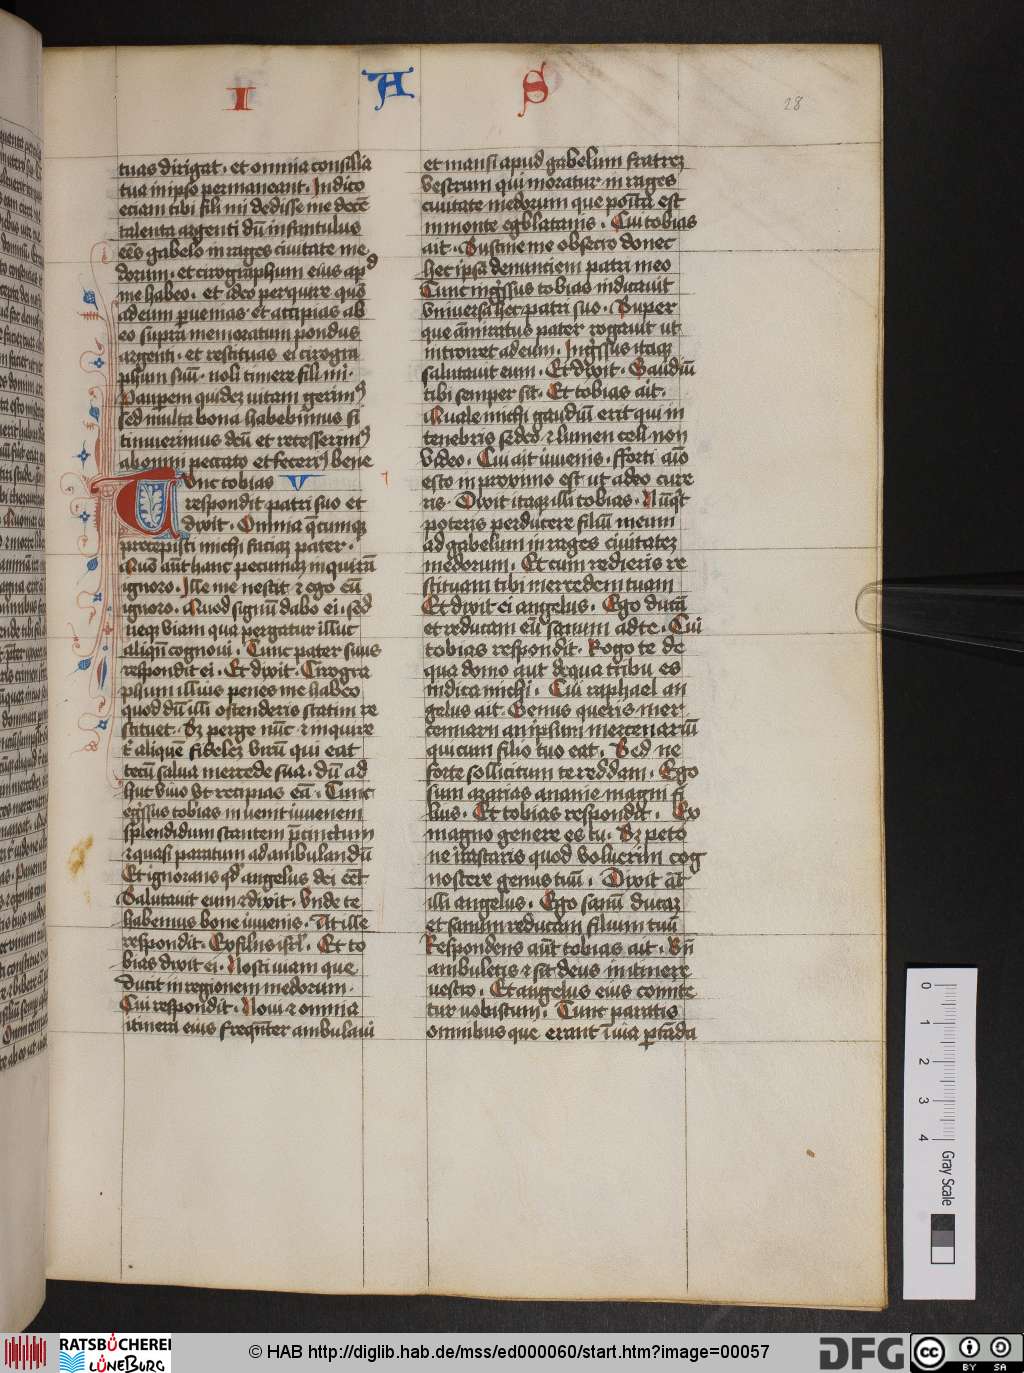 I A S
28
tuas dirigat · et omnia consilia
tua in ipso permaneant · Indico
eciam tibi fili mi dedisse me decē
talenta argenti dū infantulus
eēs gabelo in rages ciuitate me
dorum · et cirographum eius apd
me habeo · et ideo perquire quō
ad eum puenias et accipias ab
eo supra memoratum pondus
argenti · et restituas ei cirogra
phum suū · noli timere fili mi ·
Pauperem quidez uitam gerimꝰ
sed multa bona habebimus si
timuerimus deū et recesserimꝰ
ab omni peccato et fecerimꝰ bene
Tunc tobias V
respondit patri suo et
dixit · Omnia q̄cumqꝫ
precepisti michi faciaꝫ pater ·
Quō aūt hanc pecuniaꝫ inquirā
ignoro · Ille me nescit ⁊ ego eū
ignoro · Quod signū dabo ei · sed
neqꝫ viam qua pergatur illuc
aliqn̄ cognoui · Tunc pater suus
respondit ei · Et dixit · Cirogra
phum illius penes me habeo
quod dū illi ostenderis statim re
stituet · Sꝫ perge nūc ⁊ inquire
t aliquē fidelez virū qui eat
tecū salua mercede sua · dū ad
huc viuo vt recipias eā · Tunc
egssus tobias inuenit iuuenem
splendidum stantem p̄cinctum
⁊ quasi paratum ad ambulandū
Et ignorans qd angelus dei eēt
Salutauit eum ⁊ dixit · Vnde te
habemus bone iuuenis · At ille
respondit · Ex filiis isrl · Et to
bias dixit ei · Nosti uiam que
ducit in regionem medorum ·
Cui respondit · Noui ⁊ omnia
itinera eius frequenter ambulaui
et mansi apud gabelum fratrez
vestrum qui moratur in rages
ciuitate medorum que posita est
in monte egbathanis · Cui tobias
ait · Sustine me obsecro donec
hec ipsa denunciem patri meo
Tunc ingssus tobias indicauit
vniuersa hec patri suo · Super
que āmiratus pater rogauit ut
introiret ad eum · Ingssus itaqꝫ
salutauit eum · Et dixit · Gaudiū
tibi semper sit · Et tobias ait ·
Quale michi gaudiū erit qui in
tenebris sedeo ⁊ lumen celi non
video · Cui ait iuuenis · fforti aīo
esto in proximo est ut a deo cure
ris · Dixit itaqꝫ illi tobias · Nūqt
poteris perducere filiū meum
ad gabelum in rages ciuitatez
medorum · Et cum redieris re
stituam tibi mercedem tuam
Et dixit ei angelus · Ego ducā
et reducam eū sanum ad te · Cui
tobias respondit · Rogo te de
qua domo aut de qua tribu es
indica michi · Cui raphael an
gelus ait · Genus queris mer
cennarii an ipsum mercenariū
qui cum filio tuo eat · Sed ne
forte sollicitum te reddam · Ego
sum azarias ananie magni fi
lius · Et tobias respondit · Ex
magno genere es tu · Sꝫ peto
ne irascaris quod voluerim cog
noscere genus tuū · Dixit aūt
illi angelus · Ego sanū ducaꝫ
et sanum reducam filium tuū
Respondens aūt tobias ait · Bn̄
ambuletis ⁊ sit deus in itinere
uestro · Et angelus eius comite
tur vobiscum · Tunc paratis
omnibus que erant ī uia portāda
0 1 2 3 4 Gray Scale
RATSBÜCHEREI
LÜNEBURG
© HAB http://diglib.hab.de/mss/ed000060/start.htm?image=00057
DFG
cc BY SA